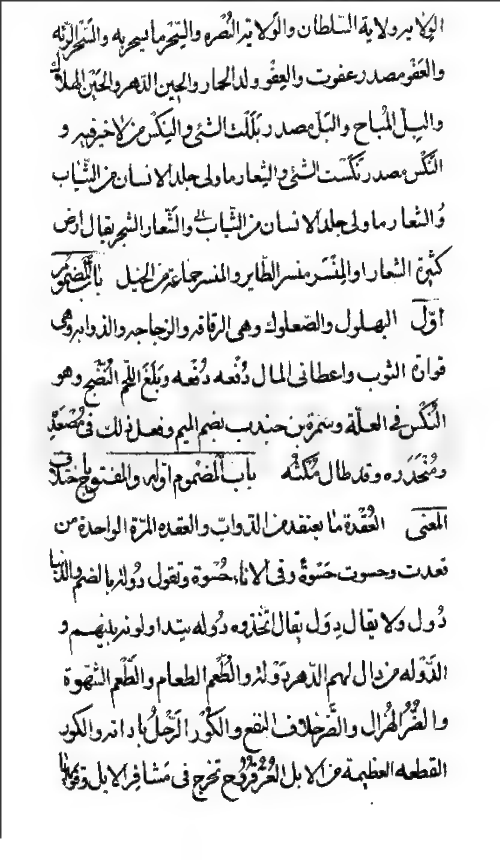 الولاية ولاية السلطان والولاية النصره والسحر ما يسحر به والسحر الرئه
والعفو مصدر عفوت والعفو ولد الحمار والحين الدهر والحين الهلاك
والبل المباح والبل مصدر بللت الشئ والنكس من لا خير فيه و
النكس مصدر نكست الشئ والشعار ما ولى جلد الانسان من الثياب
والشعار ما ولى جلد الانسان من الثياب والشعار الشجر يقال ارض
كثيرة الشعار والمنسر منسر الطاير والمنسر جماعة من الخيل باب المضموم
اوله البهلول والصعلوك وهى الرقاقه والزجاجه والذوابه وهى
قوارة الثوب واعطانى المال دُفعه دُفعه وبلغ اللحم النُضج وهو
النُكس في العلة وسمرة بن جندب بضم الميم وفعل ذلك فى مُصعَدِه
ومُنحَدَره وقد طال مُكثُه باب المضموم اوله والمفتوح باختلاف
المعنى العُقدة ما يعتقد من الدواب والعقده المرة الواحدة من
قعدت وحسوت حَسْوة وفى الاناء حُسوة وتقول دُولة بالضم والدنيا
دُول ولا يقال دِوَل يقال اتخذوه دُوله يتداولونه بينهم و
الدَوله من دال لهم الدهر دَولة والطُعم الطعام والطَعم الشهوة
والضُر الهزال والضَر خلاف النفع والكُور الرَحْل باداته والكور
القطعه العظيمة من الابل العُر قروح تخرج فى مشافر الابل وقوايمها